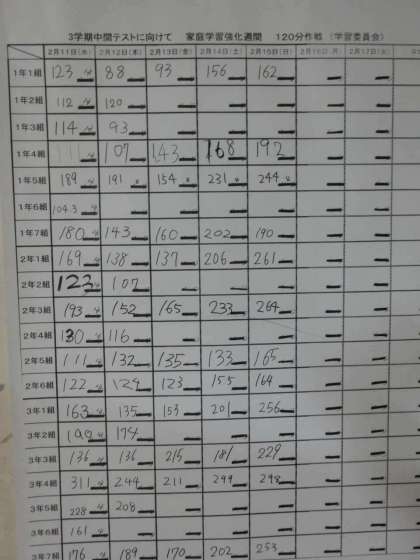 3学期中間テストに向けて 家庭学習強化週間 120分作戦 (学習委員会)
2月11日(水) 2月12日(木) 2月13日(金) 2月14日(土) 2月15日(日) 2月16日(月) 2月17日(火)
1年1組 123 88 93 156 162
1年2組 112 120
1年3組 114 93
1年4組 107 143 168 192
1年5組 189 191 154 231 244
1年6組 104.3
1年7組 180 143 160 202 190
2年1組 169 138 137 206 261
2年2組 123 107
2年3組 193 152 165 233 264
2年4組 130 116
2年5組 111 132 135 133 165
2年6組 122 129 123 155 164
3年1組 163 135 153 201 256
3年2組 174
3年3組 136 136 215 181 229
3年4組 311 244 211 299 298
3年5組 228 208
3年6組 161
3年7組 176 189 170 202 253